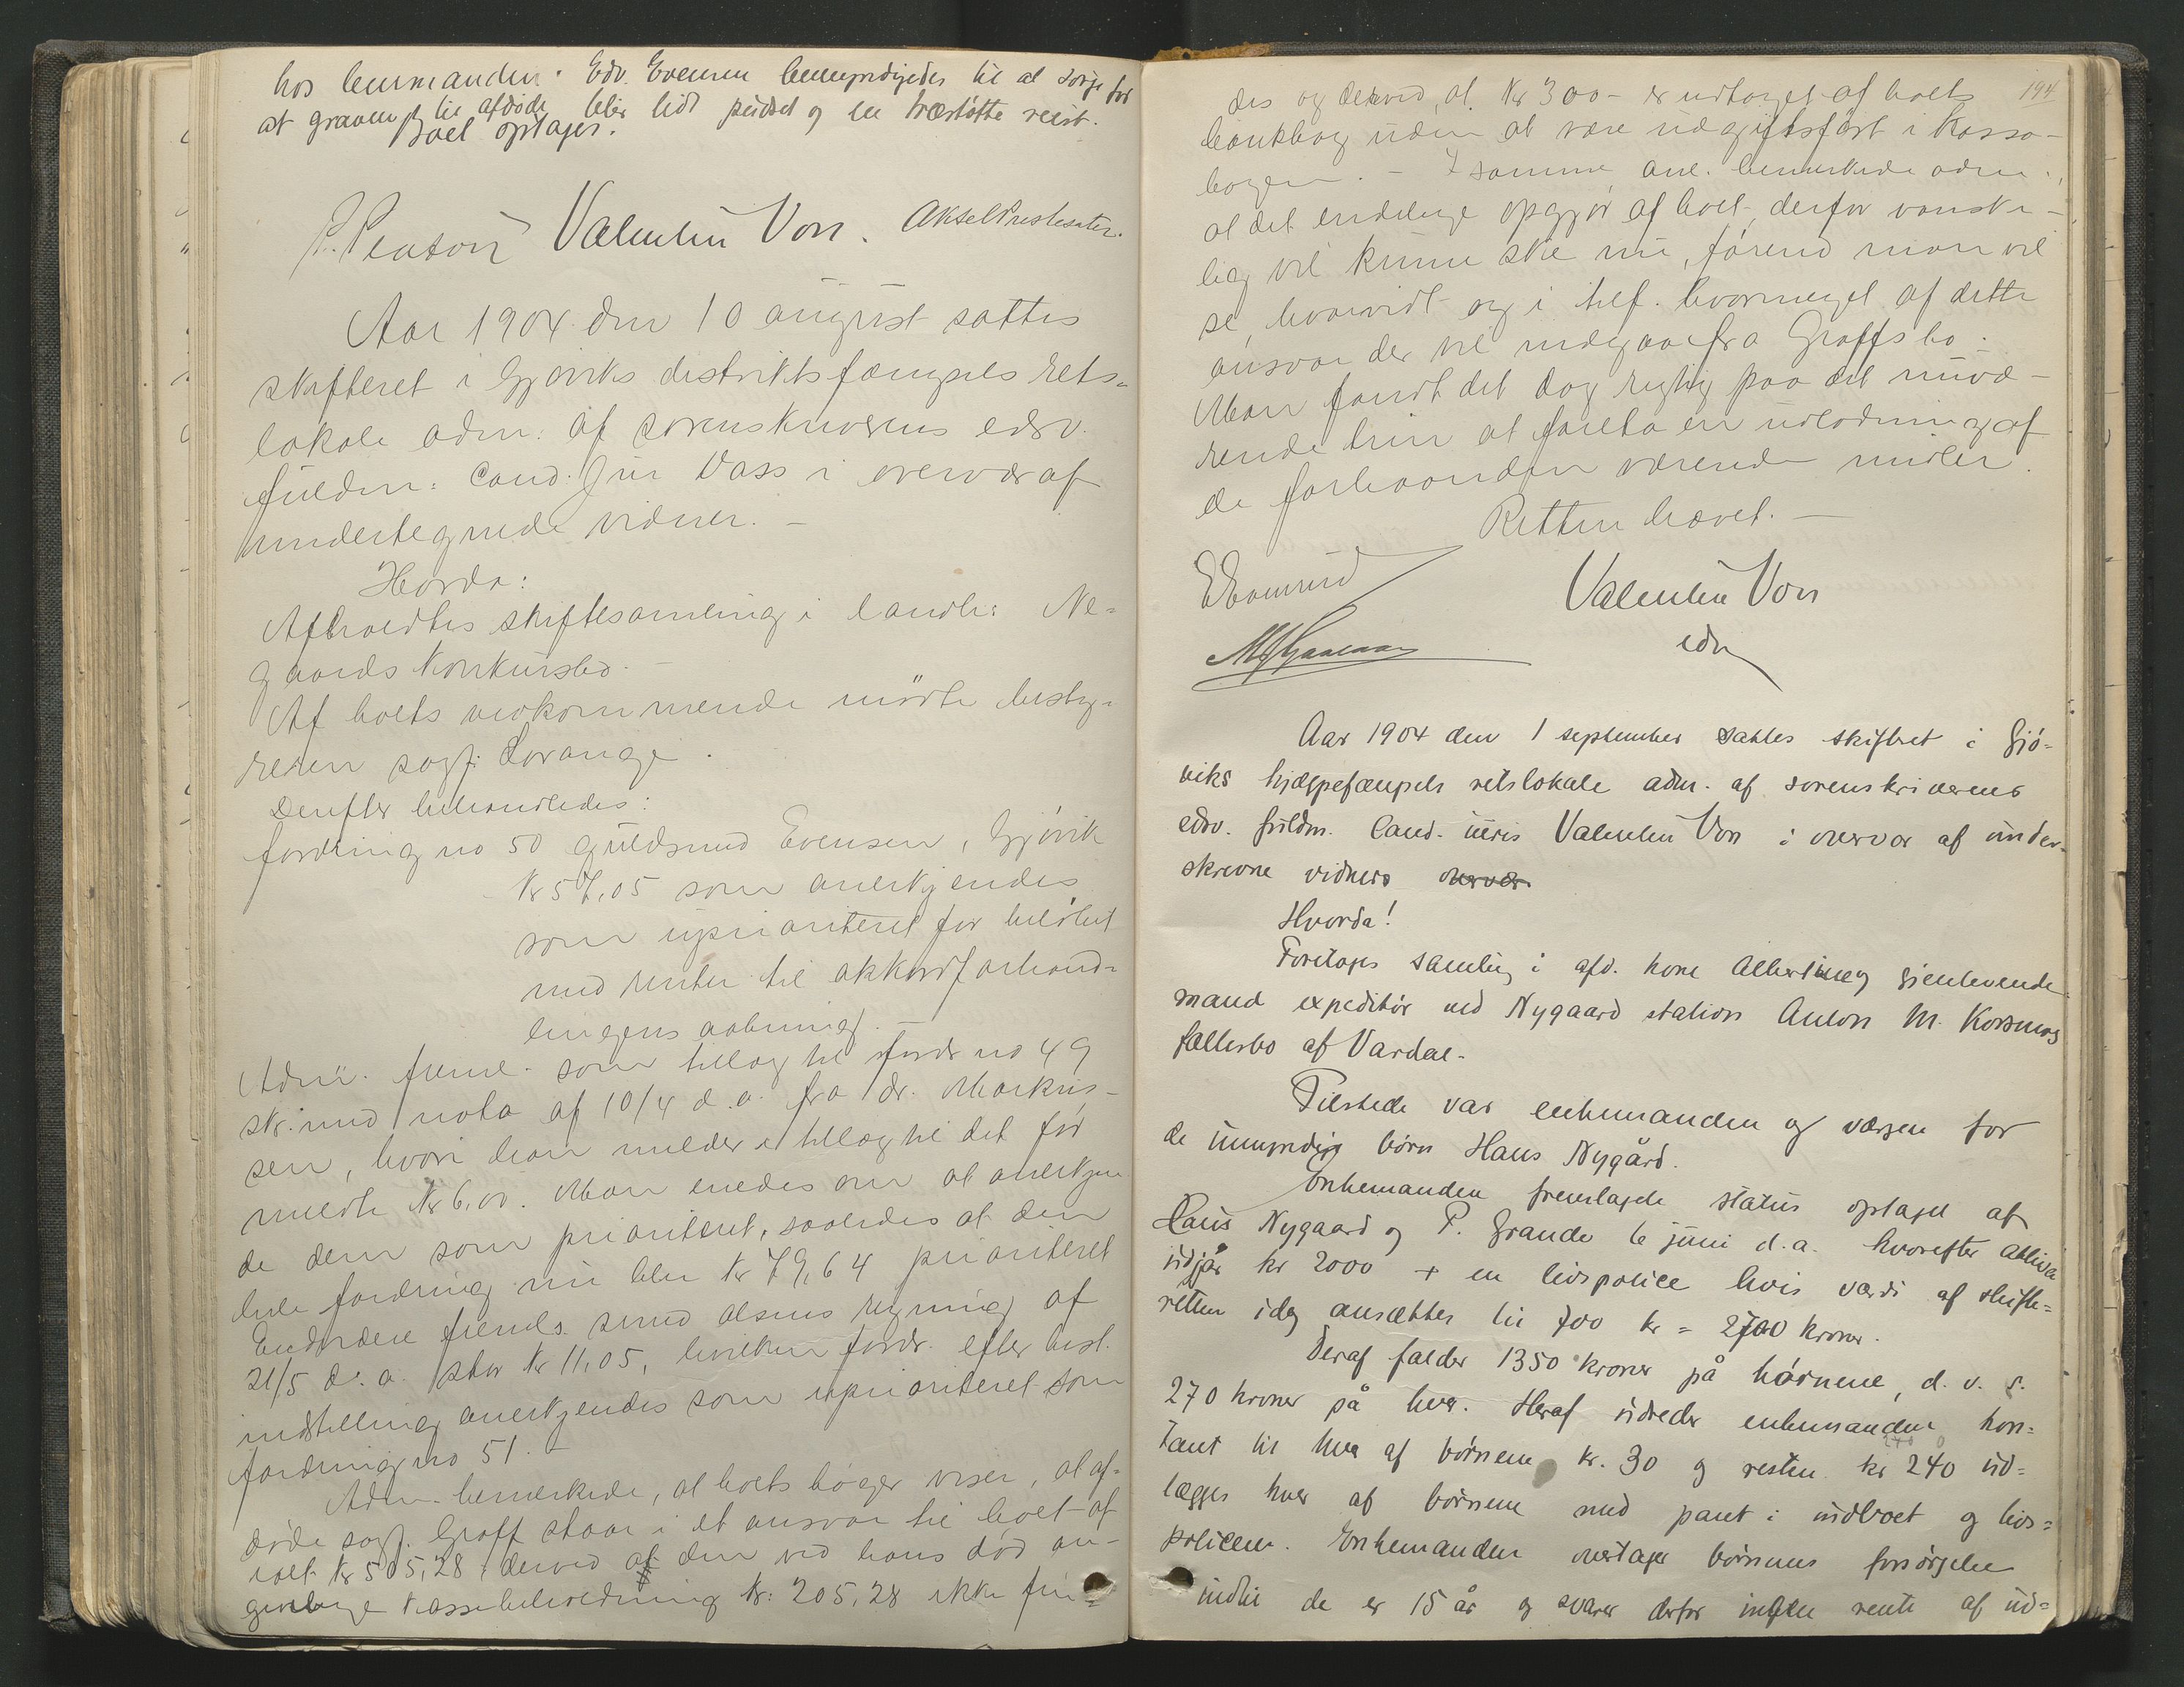 hos lensmanden. Edv. Evensen bemyndigedes til at sørge for
at graven til afdøde blir lidt pudset og en træstøtte reist.
Boet optages.
Valentin Voss. Aksel Prestesæter.
Aar 1904 den 10 august sattes
skifteret i Gjøviks distriktsfængsels rets-
lokale adm: af sorenskriverens edsv.
fuldm: Cand. Jur Voss i overvær af
undertegnede vidner. –
Hvorda:
Afholdtes skiftesamling i landh: Ne-
gaards Konkursbo. –
Af boets vedkommende mødte besty-
reren sagf. Lorange.
Derefter behandledes:
fordring no 50 guldsmed Evensen, Gjøvik
Kr 57,05 som anerkjendes
som uprioriteret for beløbet
med renter til akkordforhand-
lingens aabning. –
Adm. freml. som tillæg til fordr no 49
skr. med nota af 10/4 d.a. fra dr. Markus-
sen, hvori han melder et tillæg til det før
meldte Kr 6,00. Man enedes om at anerkjen
de dem som prioriteret, saaledes at den
hele fordring nu blir Kr 79,64 prioriteret
Endvidere fremls. smed Olsens regning af
21/5 d. a. stor Kr 11,05, hvilken fordr. efter best.
indstilling anerkjendes som uprioriteret som
fordring no 51. –
Adm. bemerkede, at boets bøger viser, at af-
døde sagf. Graff staar i et ansvar til boet af
ialt Kr 505,28 derved at den ved hans død an-
givelige kassebeholdning Kr: 205,28 ikke fin-
194
des og derved, at Kr 300 – er udtaget af boets
bankbog uden at være udgiftsført i kassa-
bogen. – I samme anl. bemerkede adm.,
at det endelige opgjør af boet derfor vanske-
lig vil kunne ske nu, førend man vil
se, hvorvidt og i tilf. hvormeget af dette
ansvar der vil indgaa fra Graffs bo.
Man fandt det dog rigtig paa det nuvæ-
rende trin at foreta en udlodning af
de forhaanden værende midler.
Retten hævet. –
Valentin Voss
edsv
Aar 1904 den 1 september sattes skifteret i Gjø-
viks hjælpefængsels retslokale adm. af sorenskriverens
edsv. fuldm. Cand. juris Valentin Voss i overvær af under-
skrevne vidners overvær
Hvorda!
Foretages samling i afd. kone Albertine og gjenlevende
mand expeditør ved Nygaard station Anton M. Korsmos
fællesbo af Vardal.
Tilstede var enkemanden og værgen for
de umyndige børn Hans Nygård.
Enkemanden fremlagde status optaget af
Hans Nygaard og P. Grande 6 juni d. a. hvorefter aktiva
udgjør kr 2000 + en livspolice hvis værdi af skifte-
retten idag ansættes til 700 kr = 2700 kroner.
Deraf falder 1350 kroner på børnene, d. v. s.
270 kroner på hver. Heraf udreder enkemanden kon-
tant til hver af børnene kr. 30 og resten kr 240 ud-
lægges hver af børnene med pant i indboet og livs-
policen. Enkemanden overtager børnenes forsørgelse
indtil de er 15 år og svarer derfor ingen rente af ud-